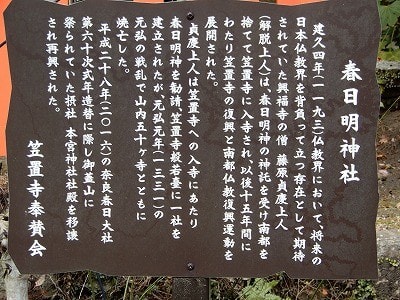 春日明神社
建久四年(一一九三)仏教界において、将来の
日本仏教界を背負って立つ存在として期待
されていた興福寺の僧 藤原貞慶上人
(解脱上人)は、春日明神の神託を受け南都を
捨てて笠置寺に入寺され、以後十五年間に
わたり笠置寺の復興と南都仏教復興運動を
展開された。
貞慶上人は笠置寺への入寺にあたり
春日明神を勧請、笠置寺般若臺に一社を
建立されたが、元弘元年(一三三一)の
元弘の戦乱で山内五十ヶ寺とともに
焼亡した。
平成二十八年(二〇一六)の奈良春日大社
第六十次式年造替に際し御蓋山に
祭られていた摂社 本宮神社社殿を移譲
され再興された。
笠置寺奉賛会